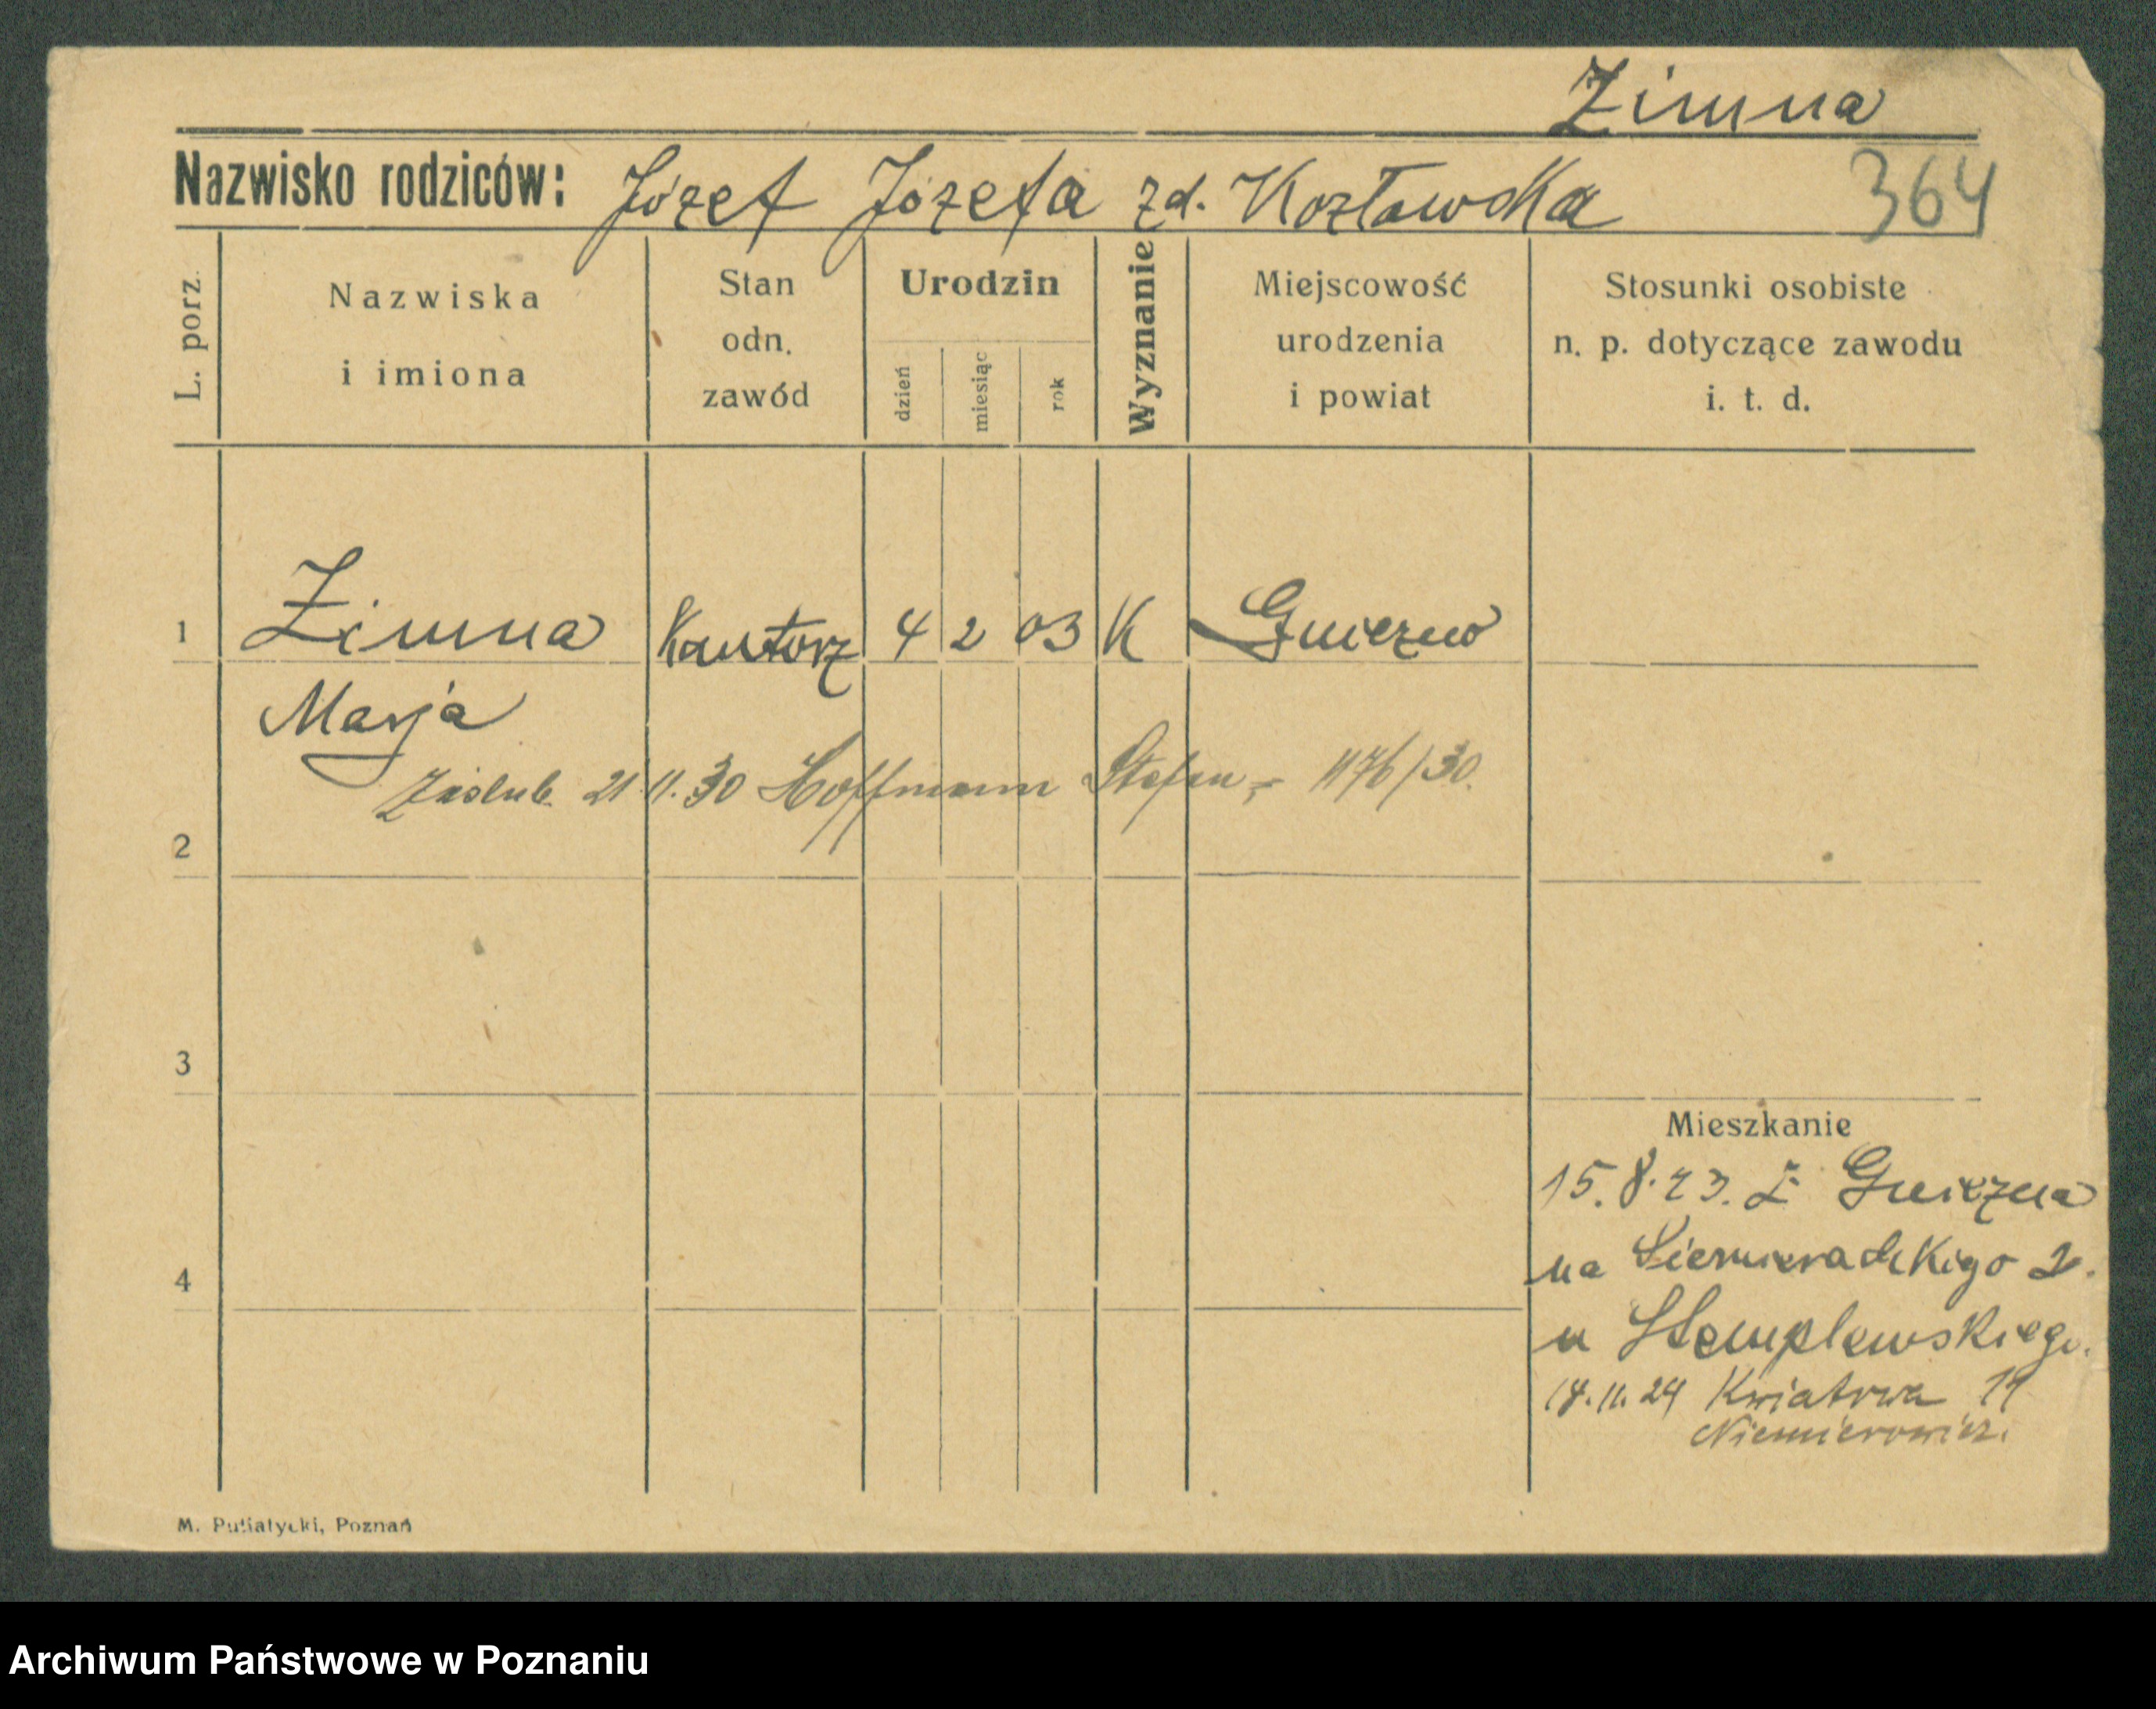 Zimna
Nazwisko rodziców: Józef Józefa zd. Kozłowska 364
L. porz.
Nazwiska
i imiona
Stan
odn.
zawód
Urodzin
dzień
miesiąc
rok
Wyznanie
Miejscowość
urodzenia
i powiat
Stosunki osobiste
n. p. dotyczące zawodu
i. t. d.
1 Zimna Kantorz 4 2 03 K Gniezno
Marja
Zaślub. 21.11.30 Hoffmann Stefan 1176/30.
2
3
Mieszkanie
15.8.23. Z Gniezna
na Siemieradzkigo 2.
4
u Stemplewskiego.
Kwiatowa
Niemierowicz.
M. Putiatycki, Poznań
Archiwum Państwowe w Poznaniu